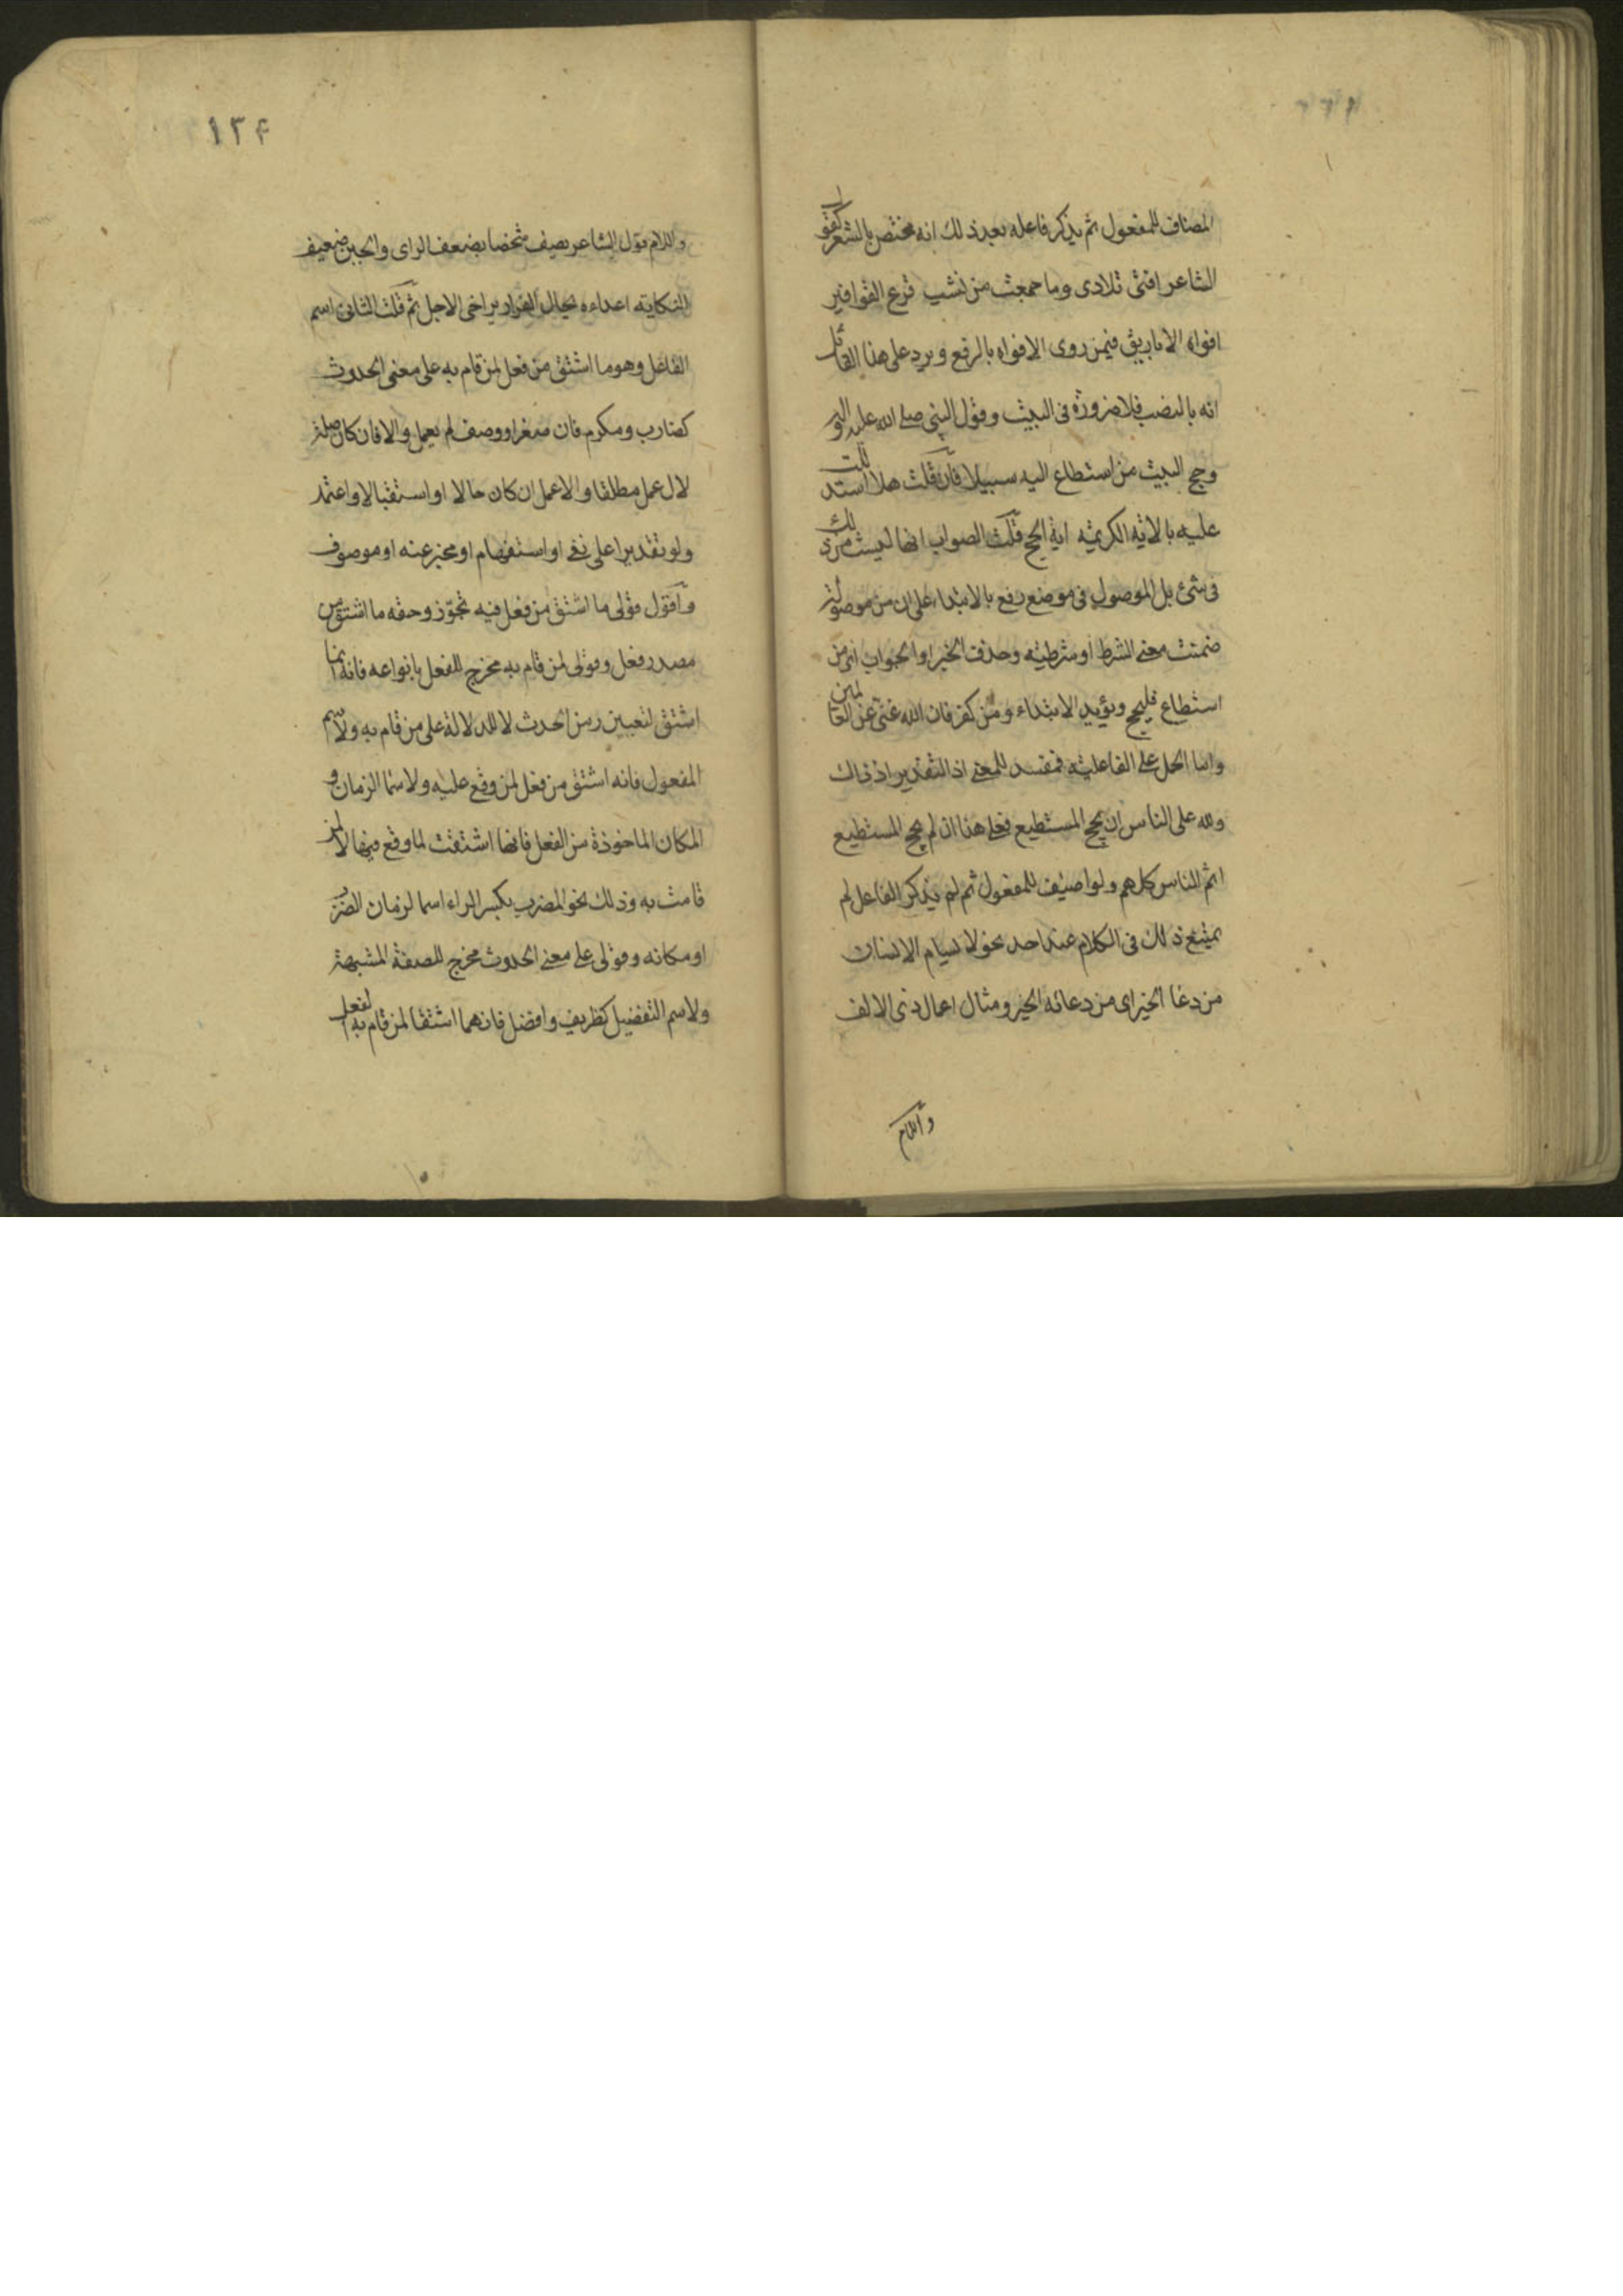 المضاف للمفعول ثم يذكر فاعله بعد ذلك انه مختص بالشعر كقول
الشاعر افنى تلادى وما جمعت من نشب قرع القواقيز
افواه الاباريق فيمن روى الافواه بالرفع ويرد على هذا القائل
انه بالنصب فلا ضرورة فى البيت وقول النبى صلى الله عليه
وحج البيت من استطاع اليه سبيلا فان قلت هلا استدللت
عليه بالاية الكريمة اية الحج قلت الصواب انها ليست من ذلك
فى شئ بل الموصول فى موضع رفع بالابتداء على ان من موصولة
ضمنت معنى الشرط او شرطية وحذف الخبر او الجواب اى من
استطاع فليحج ويؤيد الابتداء ومن كفر فان الله غنى عن العالمين
واما الحمل على الفاعلية فمفسد للمعنى اذ التقدير اذ ذاك
ولله على الناس ان يحج المستطيع فعلى هذا ان لم يحج المستطيع
اثم الناس كلهم ولو اضيف للمفعول ثم لم يذكر الفاعل لم
يمتنع ذلك فى الكلام عند احد نحو لا يسام الانسان
من دعا الخير اى من دعائه الخير ومثال اعمال ذى الالف
واللام
١٣۴
واللام قول الشاعر يصف شخصا بضعف الراى والجبن ضعيف
النكاية اعداءه يخال الفرار يراخى الاجل ثم قلت الثانى اسم
الفاعل وهو ما اشتق من فعل لمن قام به على معنى الحدوث
كضارب ومكرم فان صغر او وصف لم يعمل والا فان كان صلة
لال عمل مطلقا والا عمل ان كان حالا او استقبالا واعتمد
ولو تقديرا على نفى او استفهام او مخبر عنه او موصوف
واقول قولى ما اشتق من فعل فيه تجوّز وحقه ما اشتق من
مصدر فعل وقولى لمن قام به مخرج للفعل بانواعه فانه انما
اشتق لتعيين زمن الحدث لا للدلالة على من قام به ولاسم
المفعول فانه اشتق من فعل لمن وقع عليه ولاسما الزمان و
المكان الماخوذة من الفعل فانها اشتقت لما وقع فيها لا لمن
قامت به وذلك نحو المضرب بكسر الراء اسما لزمان الضرب
او مكانه وقولى على معنى الحدوث مخرج للصفة المشبهة
ولاسم التفضيل كظريف وافضل فانهما اشتقا لمن قام به الفعل